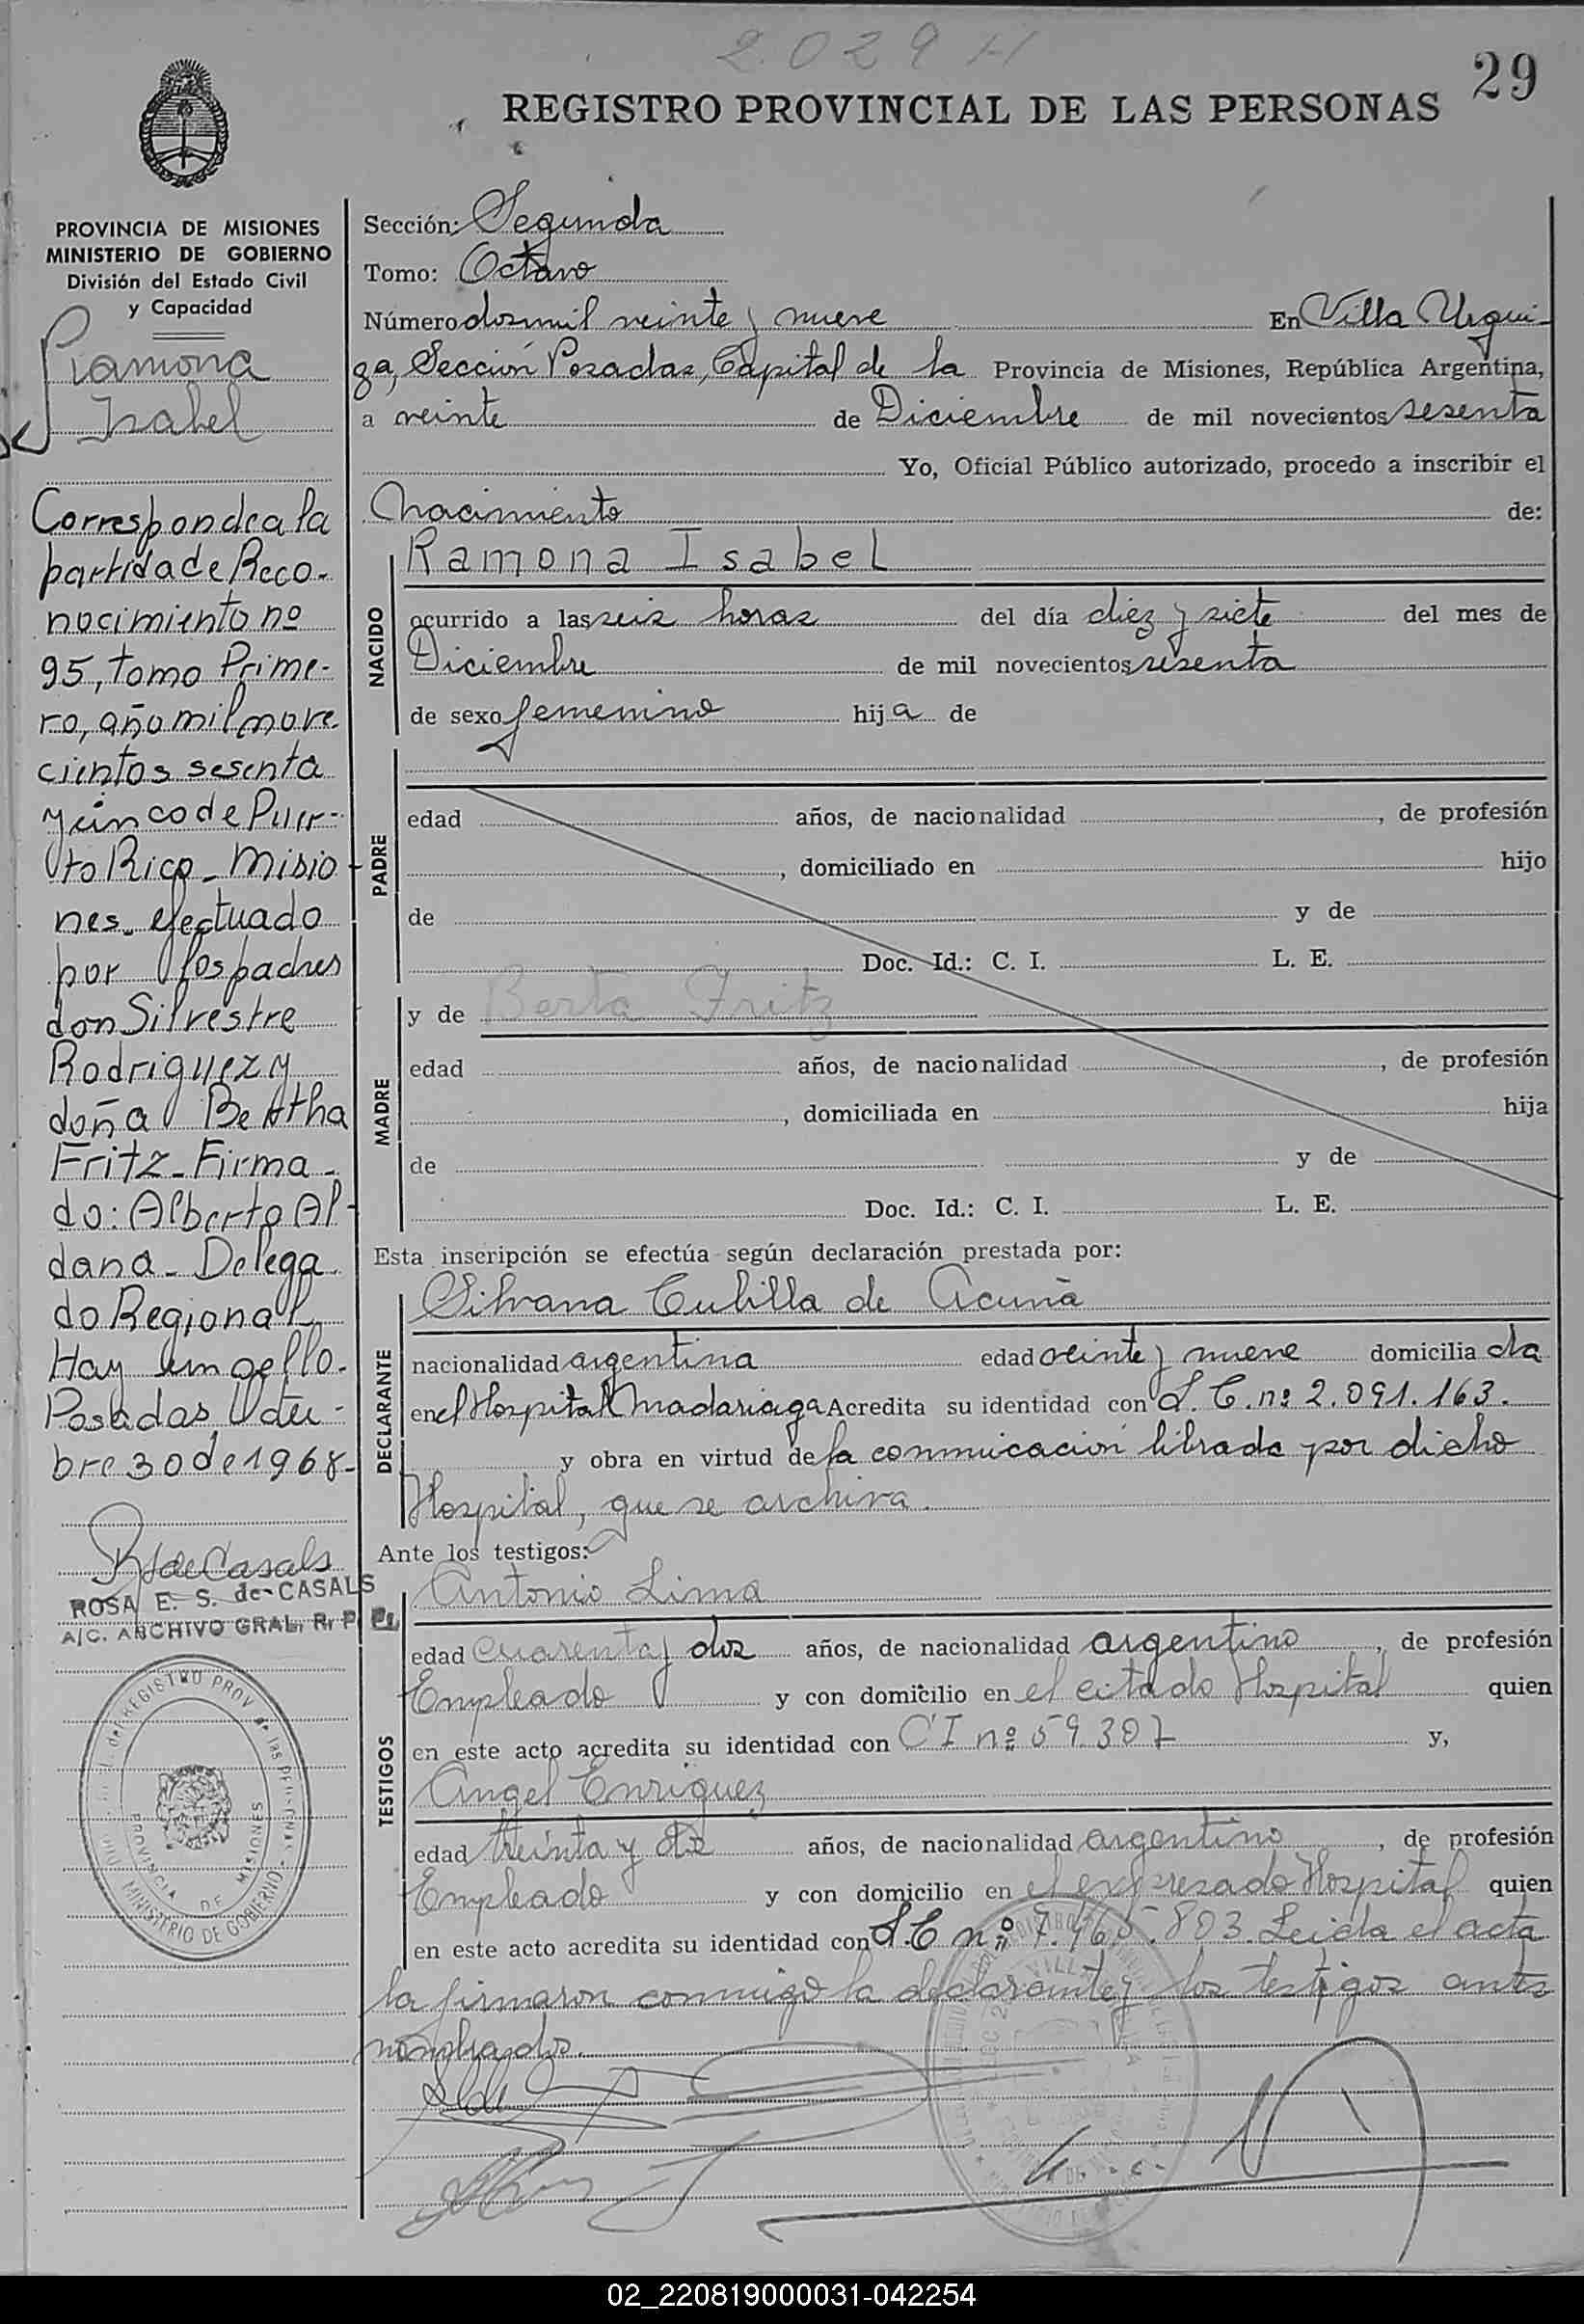 2.029 H
29
REGISTRO PROVINCIAL DE LAS PERSONAS
PROVINCIA DE MISIONES
MINISTERIO DE GOBIERNO
División del Estado Civil
y Capacidad
Ramona
Isabel
Corresponde a la
partida de Reco-
nocimiento nº
95, tomo Prime-
ro, año mil nove
cientos sesenta
y cinco de Puer-
to Rico - Misio
nes - efectuado
por los padres
don Silvestre
Rodriguez y
doña Bertha
Fritz - Firma -
do: Alberto Al-
dana - Delega
do Regional
Hay un sello.
Posadas, Octu-
bre 30 de 1968-
R S de Casals
ROSA E. S. de CASALS
A/C. ARCHIVO GRAL. R. P. P.
REGISTRO PROV. de las PERSONAS
MINISTERIO DE GOBIERNO
PROVINCIA DE MISIONES
Sección: Segunda
Tomo: Octavo
Número dosmil veinte y nueve En Villa Urqui-
za, Sección Posadas, Capital de la Provincia de Misiones, República Argentina,
a veinte de Diciembre de mil novecientos sesenta
Yo, Oficial Público autorizado, procedo a inscribir el
Nacimiento de:
NACIDO
Ramona Isabel
ocurrido a las seis horas del día diez y siete del mes de
Diciembre de mil novecientos sesenta
de sexo femenino hija de
PADRE
edad años, de nacionalidad , de profesión
, domiciliado en hijo
de y de
Doc. Id.: C. I. L. E.
MADRE
y de Berta Fritz
edad años, de nacionalidad , de profesión
, domiciliada en hija
de y de
Doc. Id.: C. I. L. E.
Esta inscripción se efectúa según declaración prestada por:
DECLARANTE
Silvana Cubilla de Acuña
nacionalidad argentina edad veinte y nueve domicilia da
en el Hospital Madariaga Acredita su identidad con L. C. nº 2.091.163.
y obra en virtud de la comunicación librada por dicho
Hospital, que se archiva.
Ante los testigos:
TESTIGOS
Antonio Lima
edad cuarenta y dos años, de nacionalidad argentino , de profesión
Empleado y con domicilio en el citado Hospital quien
en este acto acredita su identidad con C I nº 59.307 y,
Angel Enriquez
edad treinta y años, de nacionalidad argentino , de profesión
Empleado y con domicilio en el expresado Hospital quien
en este acto acredita su identidad con L.E nº 7.465.803. Leida el acta
la firmaron conmigo la declarante y los testigos antes
nombrados.
02_220819000031-042254